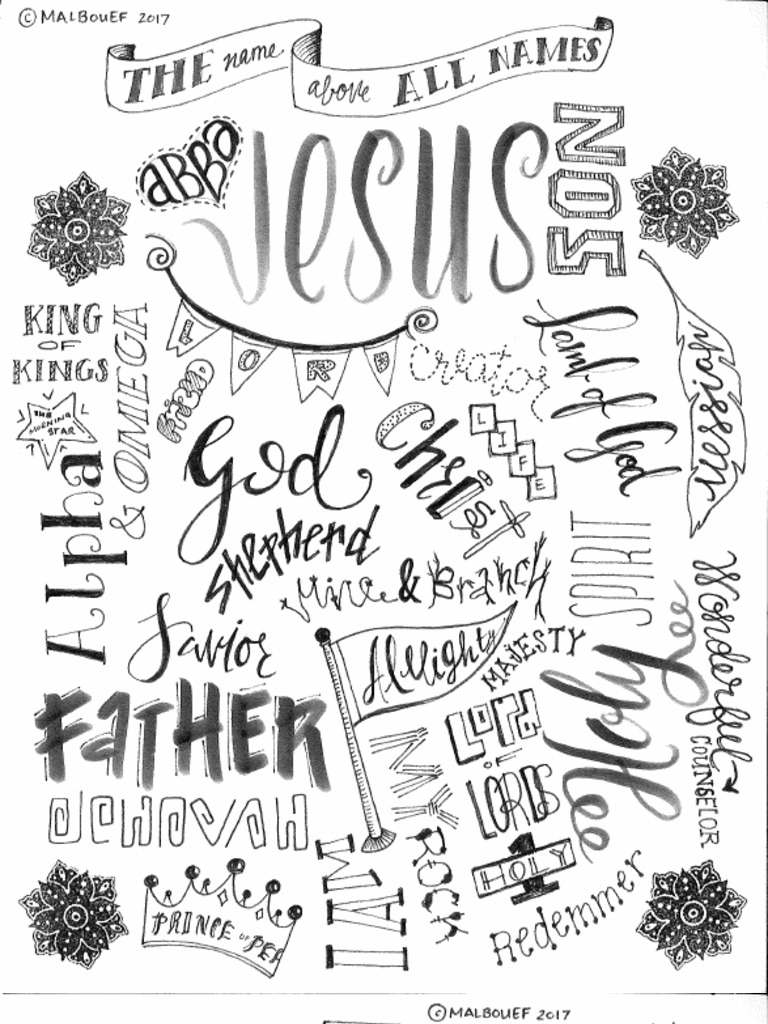 © MALBOUEF 2017
THE name above ALL NAMES
ABBA
JESUS
SON
LORD
KING
OF
KINGS
& OMEGA
THE
MORNING
STAR
Alpha
FRIEND
creator
Lamb of God
Messiah
God
Christ
LIFE
shepherd
Vine & Branch
SPIRIT
Wonderful
COUNSELOR
Savior
Almighty
MAJESTY
Holy
FATHER
LORD
OF
LORDS
MY
ROCK
JEHOVAH
I AM
HOLY 1
Redemmer
PRINCE OF PEA
© MALBOUEF 2017